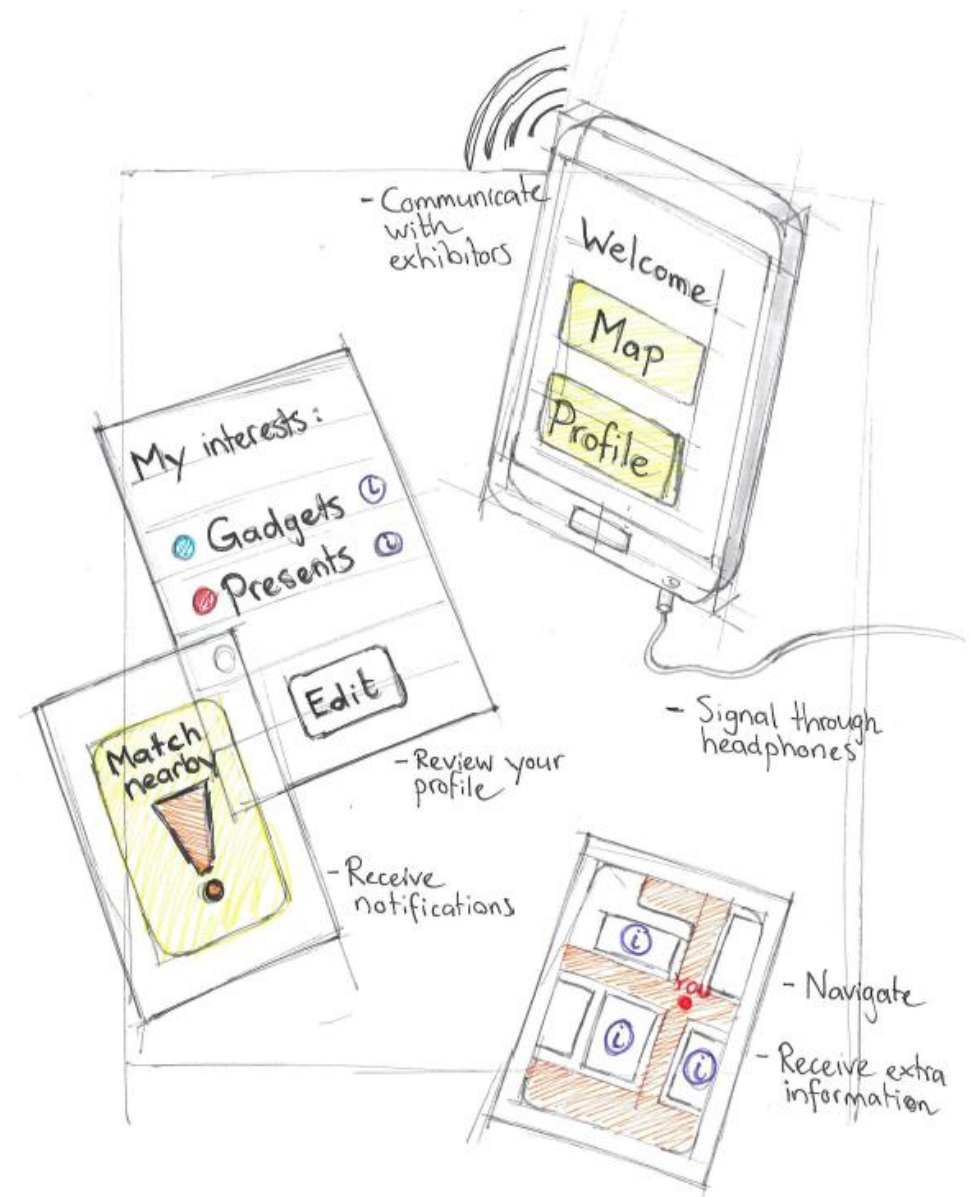 - Communicate
with
exhibitors
Welcome
Map
Profile
My interests:
Gadgets i
Presents i
Edit
- Signal through
headphones
- Review your
profile
Match
nearby
!
- Receive
notifications
i
YOU
i
i
- Navigate
- Receive extra
information